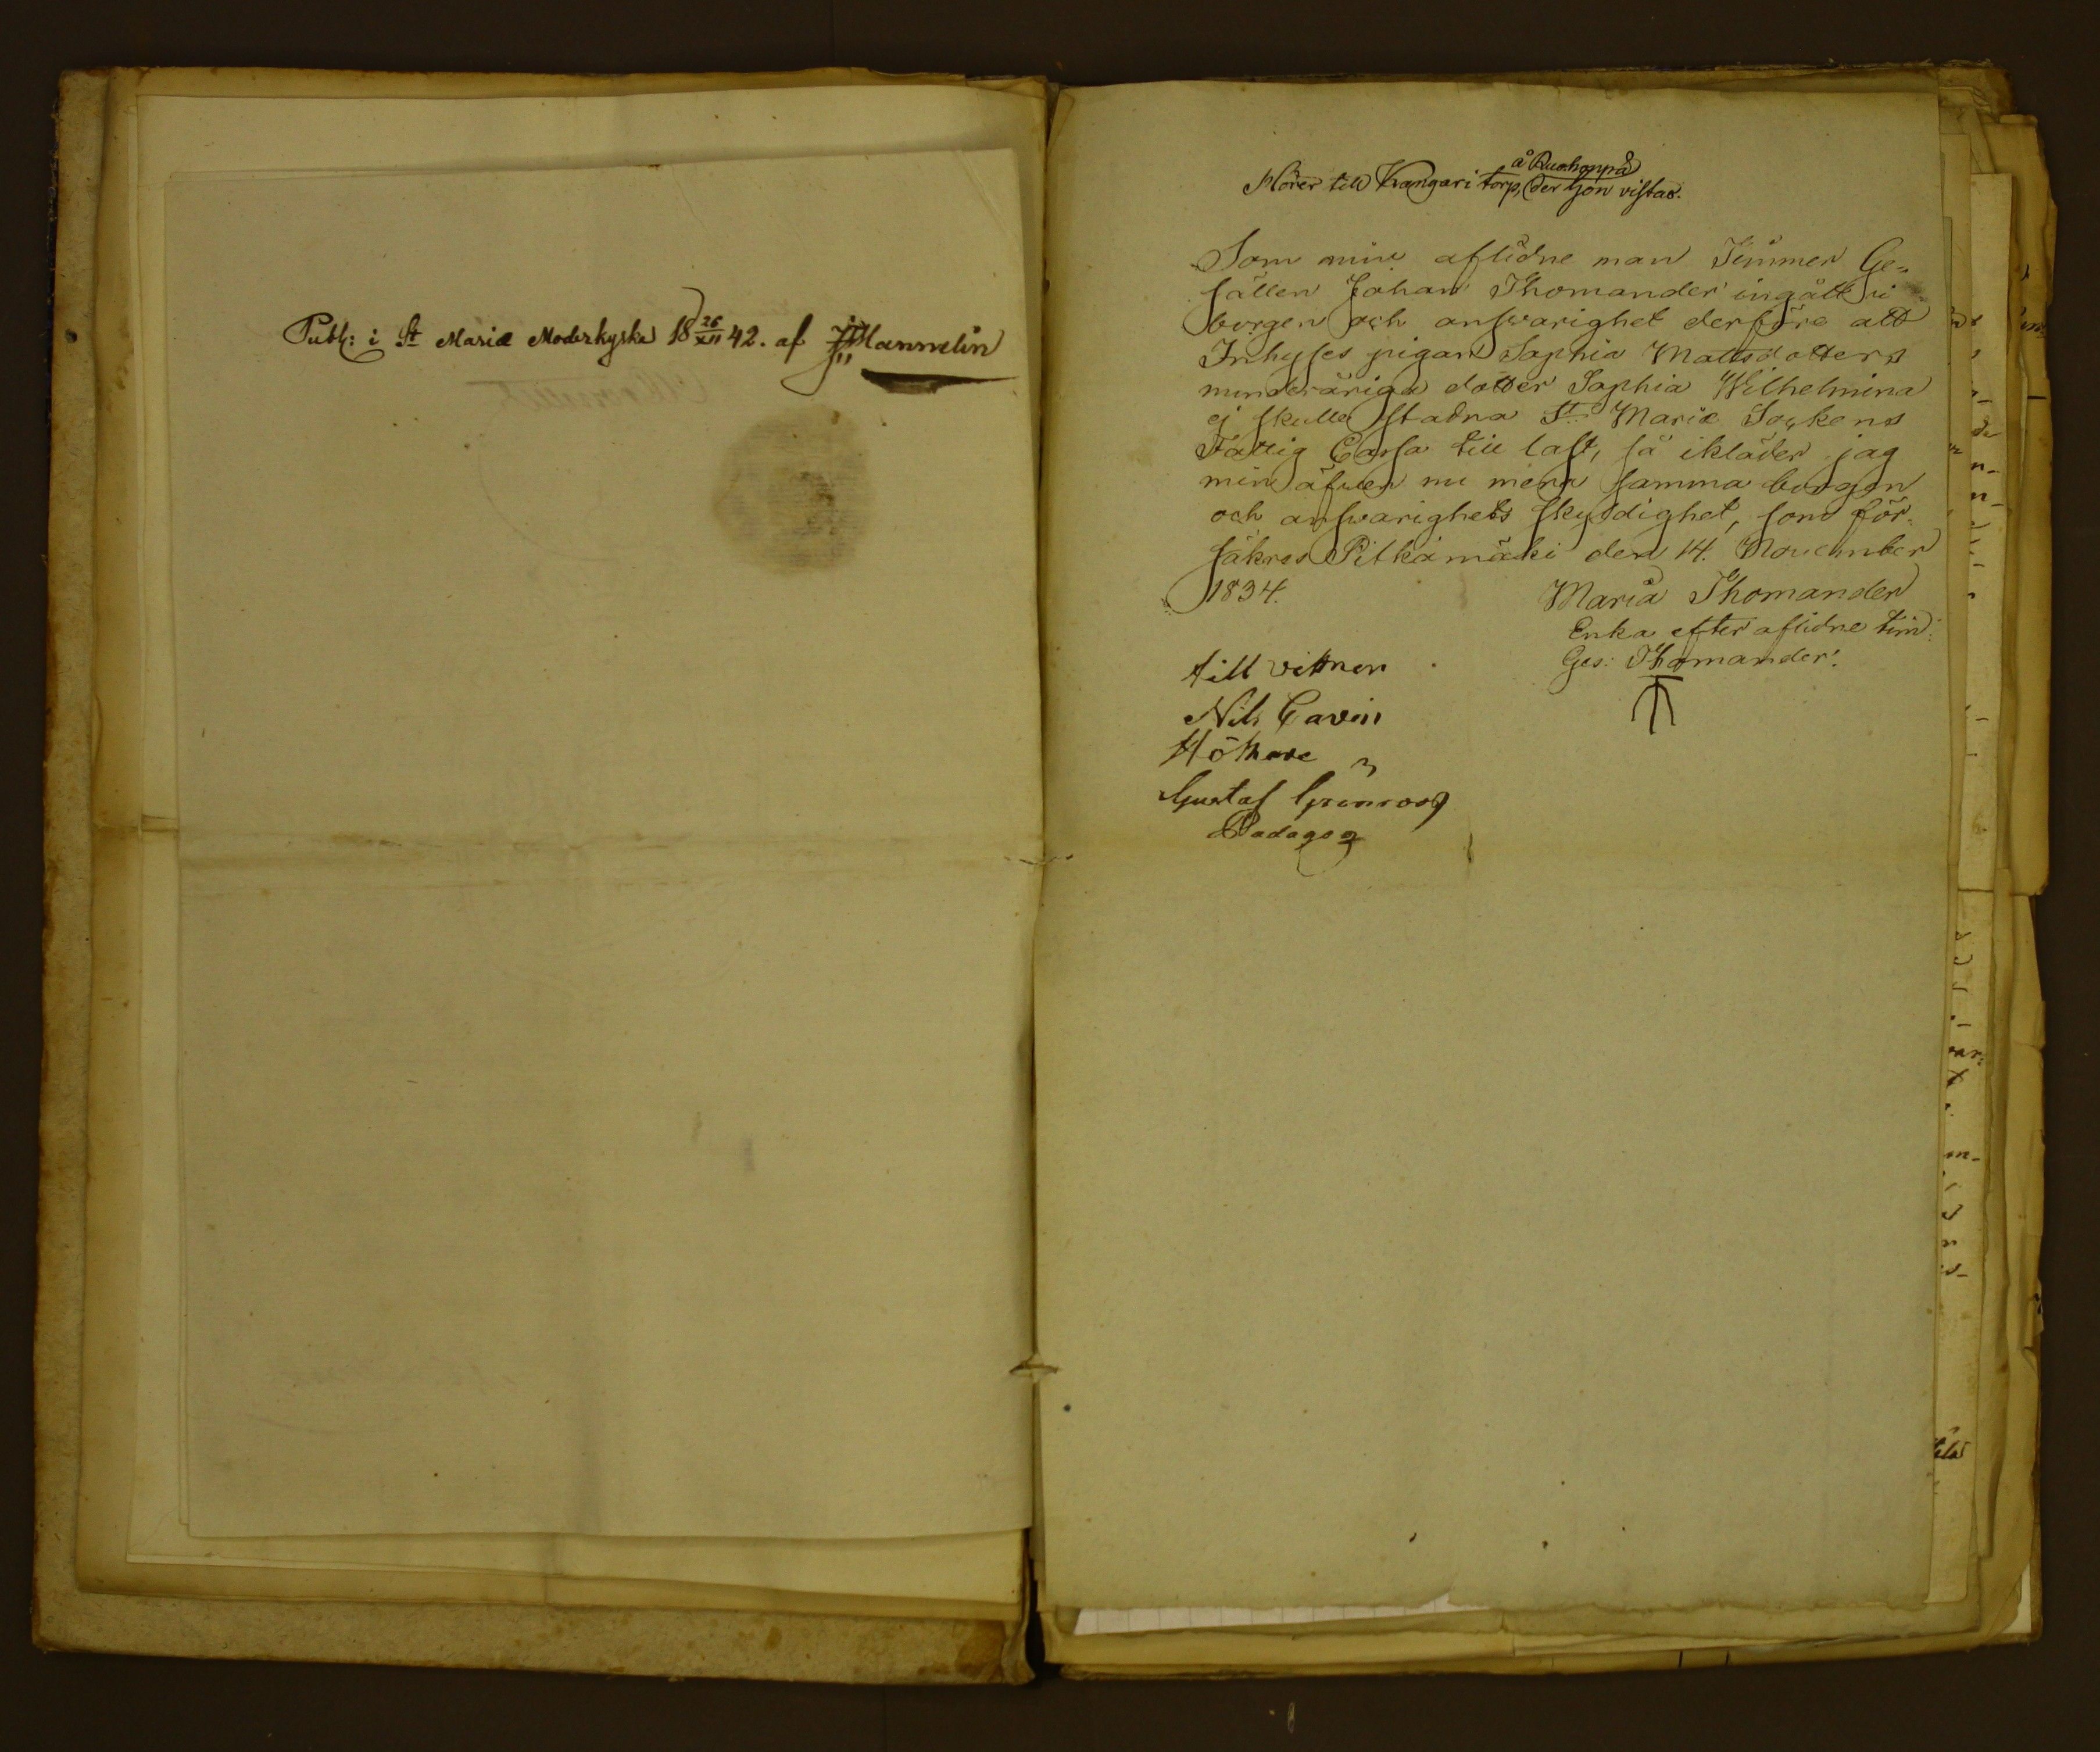 Publ: i St Mariæ Moderkyrka 18 26/XII 42. af Hammelin
å Ruohonpää
Hörer till Kangari torp, der hon vistas.
Som min aflidne man Timmer Ge=
sällen Johan Thomander ingått i
borgen och answarighet derföre att
Inhyses pigan Sophia Mattsdotters
minderåriga dotter Sophia Wilhelmina
ej skulle stadna St Mariæ Sockens
Fattig Cassa till last, så ikläder jag
min äfwen nu mera samma borgen
och answarighets skyldighet, som för=
säkras Pitkämäki den 14. November
1834.
Maria Thomander
Enka efter aflidne tim:
Ges: Thomander.
till vittnen
Nils Cavén
Hökare
Gustaf Grönroos
Pädagog